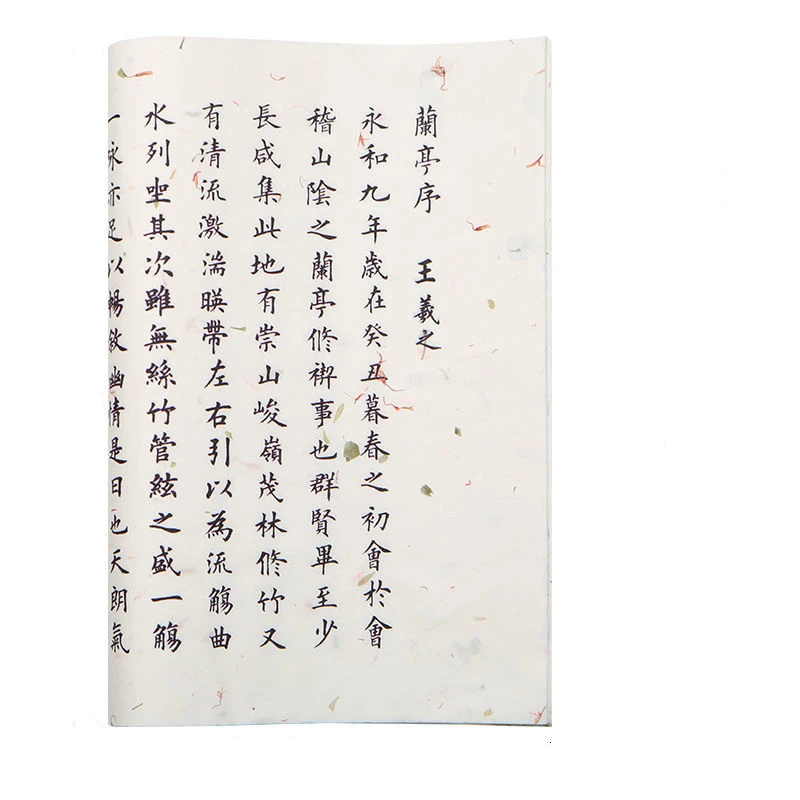 蘭亭序 王羲之
永和九年歲在癸丑暮春之初會於會
稽山陰之蘭亭脩禊事也群賢畢至少
長咸集此地有崇山峻嶺茂林脩竹又
有清流激湍暎帶左右引以為流觴曲
水列坐其次雖無絲竹管絃之盛一觴
一詠亦足以暢敘幽情是日也天朗氣